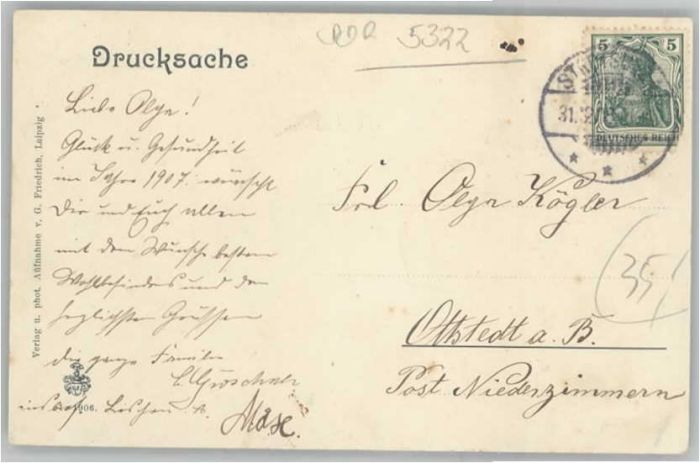 DDR 5322
5 5
DEUTSCHES REICH
ST
31.12.
Drucksache
Liebe Olga!
Glück u. Gesundheit
im Jahre 1907 wünscht
Dir und Euch allen
mit dem Wunsche besten
Wohlbefindens und den
herzlichsten Grüssen
die ganze Familie
Frl. Olga Kögler
(35)
Ottstedt a. B.
Post Niederzimmern
Verlag u. phot. Aufnahme v. G. Friedrich, Leipzig
1906.